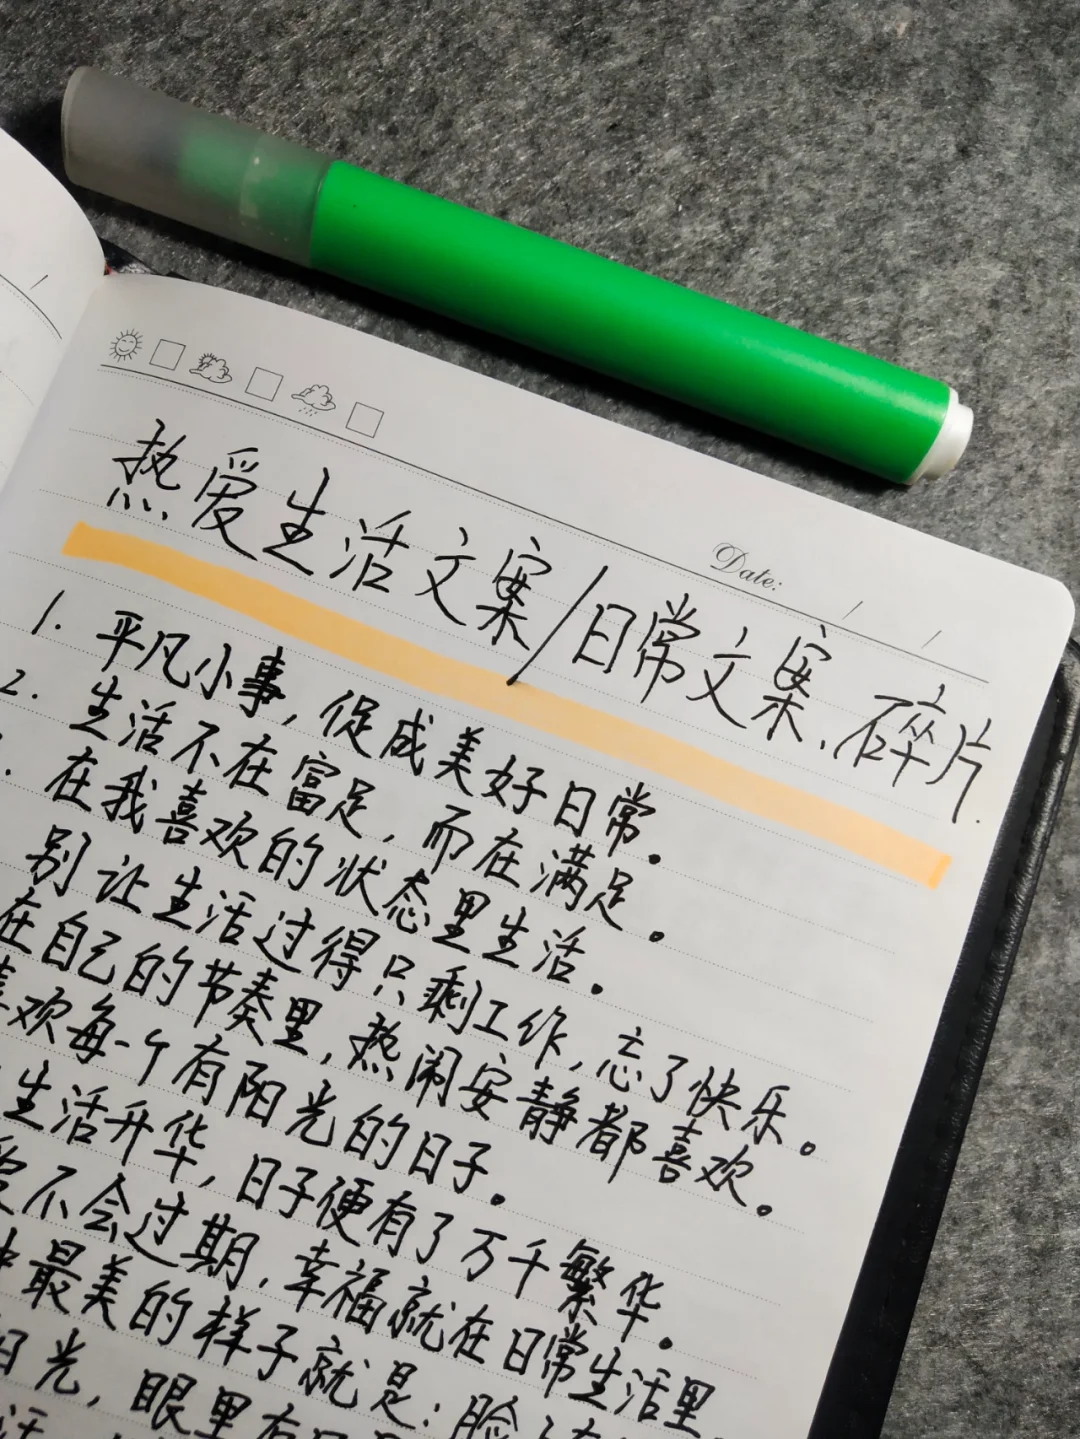 Date: / /
热爱生活文案/日常文案.碎片.
1. 平凡小事,促成美好日常。
2. 生活不在富足,而在满足。
. 在我喜欢的状态里生活。
别让生活过得只剩工作,忘了快乐。
在自己的节奏里,热闹安静都喜欢。
喜欢每一个有阳光的日子。
生活升华,日子便有了万千繁华。
爱不会过期,幸福就在日常生活里
最美的样子就是:脸上
阳光,眼里有
活